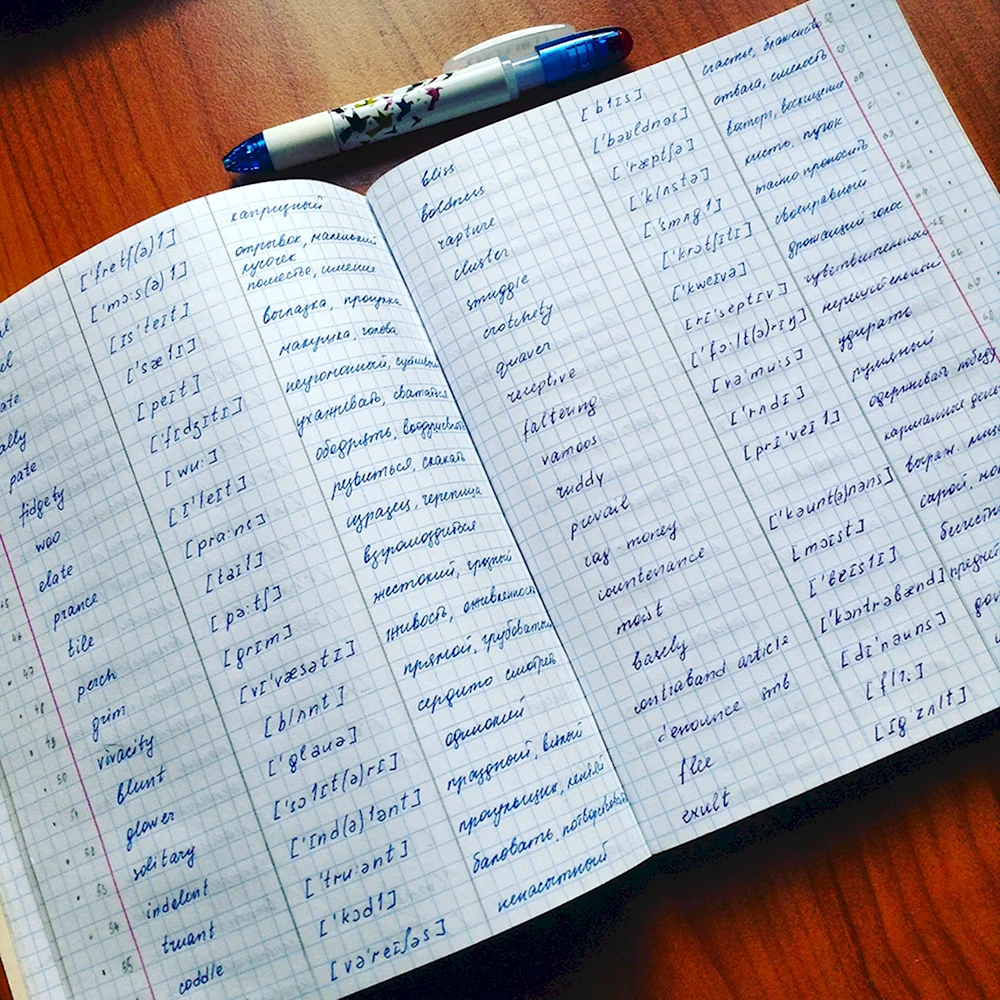 [ˈfretf(ə)l] капризный
[ˈmɔ:s(ə)l] отрывок, маленький
кусочек
ate [ɪsˈteɪt] поместье, имение
ally [ˈsælɪ] вылазка, прогулка
pate [peɪt] макушка, голова
fidgety [ˈfɪdʒɪtɪ] неугомонный, суетливый
woo [wu:] ухаживать, свататься
elate [ɪˈleɪt] ободрять, воодушевлять
prance [prɑ:ns] резвиться, скакать
45 tile [taɪl] изразец, черепица
46 perch [pə:tʃ] взгромоздиться
47 grim [grɪm] жестокий, грозный
48 vivacity [vɪˈvæsətɪ] живость, оживленность
49 blunt [blʌnt] прямой, грубоватый
50 glower [ˈglauə] сердито смотреть
51 solitary [ˈsɔlɪt(ə)rɪ] одинокий
52 indolent [ˈɪnd(ə)lənt] праздный, вялый
53 truant [ˈtru:ənt] прогульщик, ленивый
54 coddle [ˈkɔdl] баловать, потворствовать
55 [vəˈreɪʃəs] ненасытный
bliss [blɪs] счастье, блаженство
boldness [ˈbəuldnəs] отвага, смелость
rapture [ˈræptʃə] восторг, восхищение
cluster [ˈklʌstə] кисть, пучок
smuggle [ˈsmʌgl] тайно проносить
crotchety [ˈkrɔtʃɪtɪ] своенравный
quaver [ˈkweɪvə] дрожащий голос
receptive [rɪˈseptɪv] чувствительный
faltering [ˈfɔ:lt(ə)rɪŋ] нерешительный
vamoos [vəˈmu:s] удирать
ruddy [ˈrʌdɪ] румяный
prevail [prɪˈveɪl] одерживать победу
money карманные день
countenance [ˈkaunt(ə)nəns] выраж. лица
moist [mɔɪst] сырой,
basely [ˈbeɪslɪ] бесчестн
contraband article [ˈkɔntrəbænd] предмет
denounce smb [dɪˈnauns]
flee [fli:]
exult [ɪgˈzʌlt]